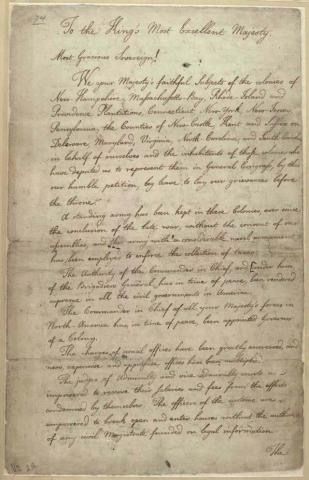 74
To the King's Most Excellent Majesty.
Most Gracious Sovereign!
We your Majesty's faithful Subjects of the colonies of
New-Hampshire, Massachusetts Bay, Rhode Island and
Providence Plantations, Connecticut, New-York, New-Jersey
Pensylvania, the Counties of New-Castle, Kent and Sussex on
Delaware, Maryland, Virginia, North Carolina, and South Carolina
in behalf of ourselves and the inhabitants of these colonies, who
have deputed us to represent them in General Congress, by this
our humble petition, beg leave to lay our grievances before
the throne.
A standing army has been kept in these Colonies, ever since
the conclusion of the late war, without the consent of our
assemblies; and this army with a considerable naval armament
has been employed to enforce the collection of taxes.
The Authority of the Commander in Chief, and under him
of the Brigadiers General, has in time of peace, been rendered
supreme in all the civil governments in America.
The Commander in Chief of all your Majesty's forces in
North America has, in time of peace, been appointed Governor
of a Colony.
The charges of usual offices have been greatly increased, and
new, expensive and oppressive offices have been multiplied.
The judges of Admiralty and vice admiralty courts are
empowered to receive their salaries and fees from the effects
condemned by themselves. The officers of the customs are
empowered to break open and enter houses without the authority
of any civil Magistrate founded on legal information.
The